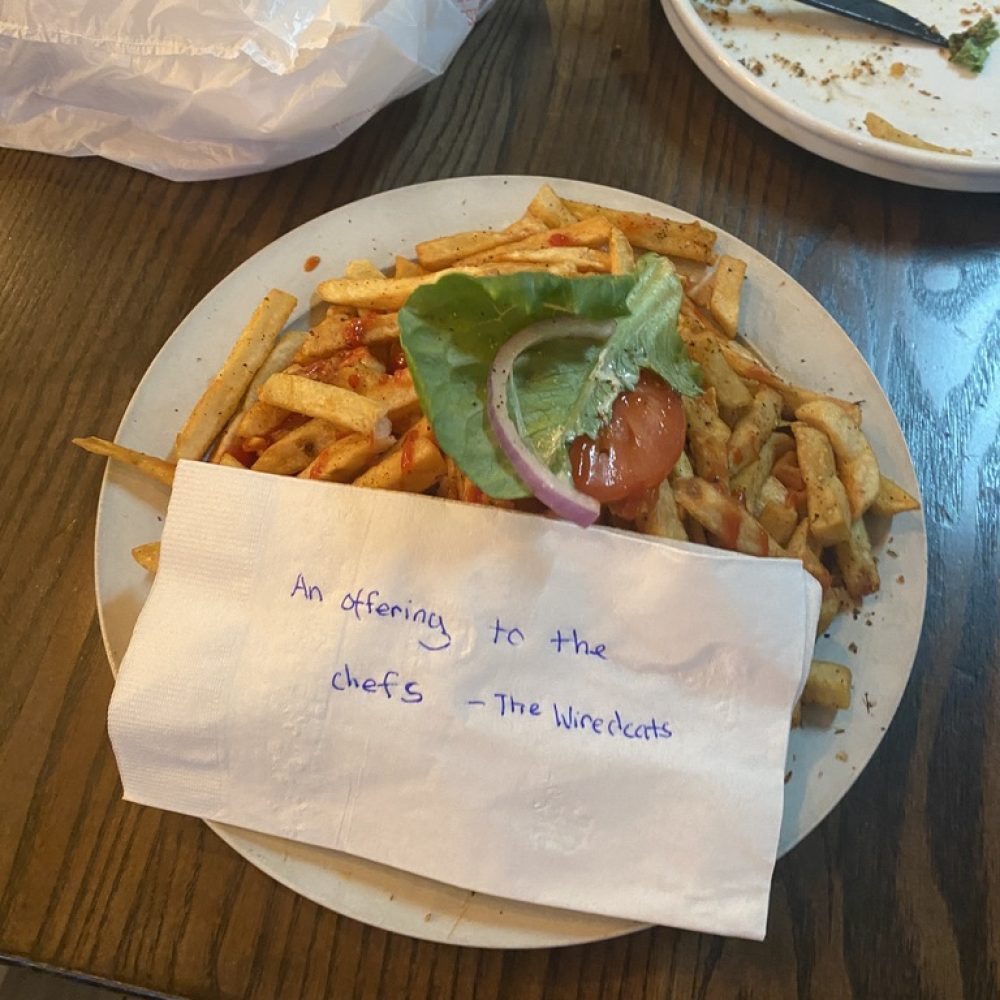 An offering to the
chefs - The Wiredcats